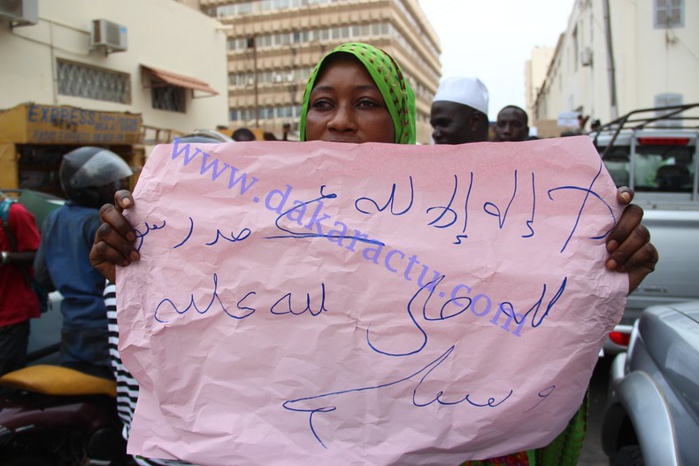 EXPRESS
www.dakaractu.com
لا إله إلا لله محمد رسو
لله صلى لله عليه
وسلم